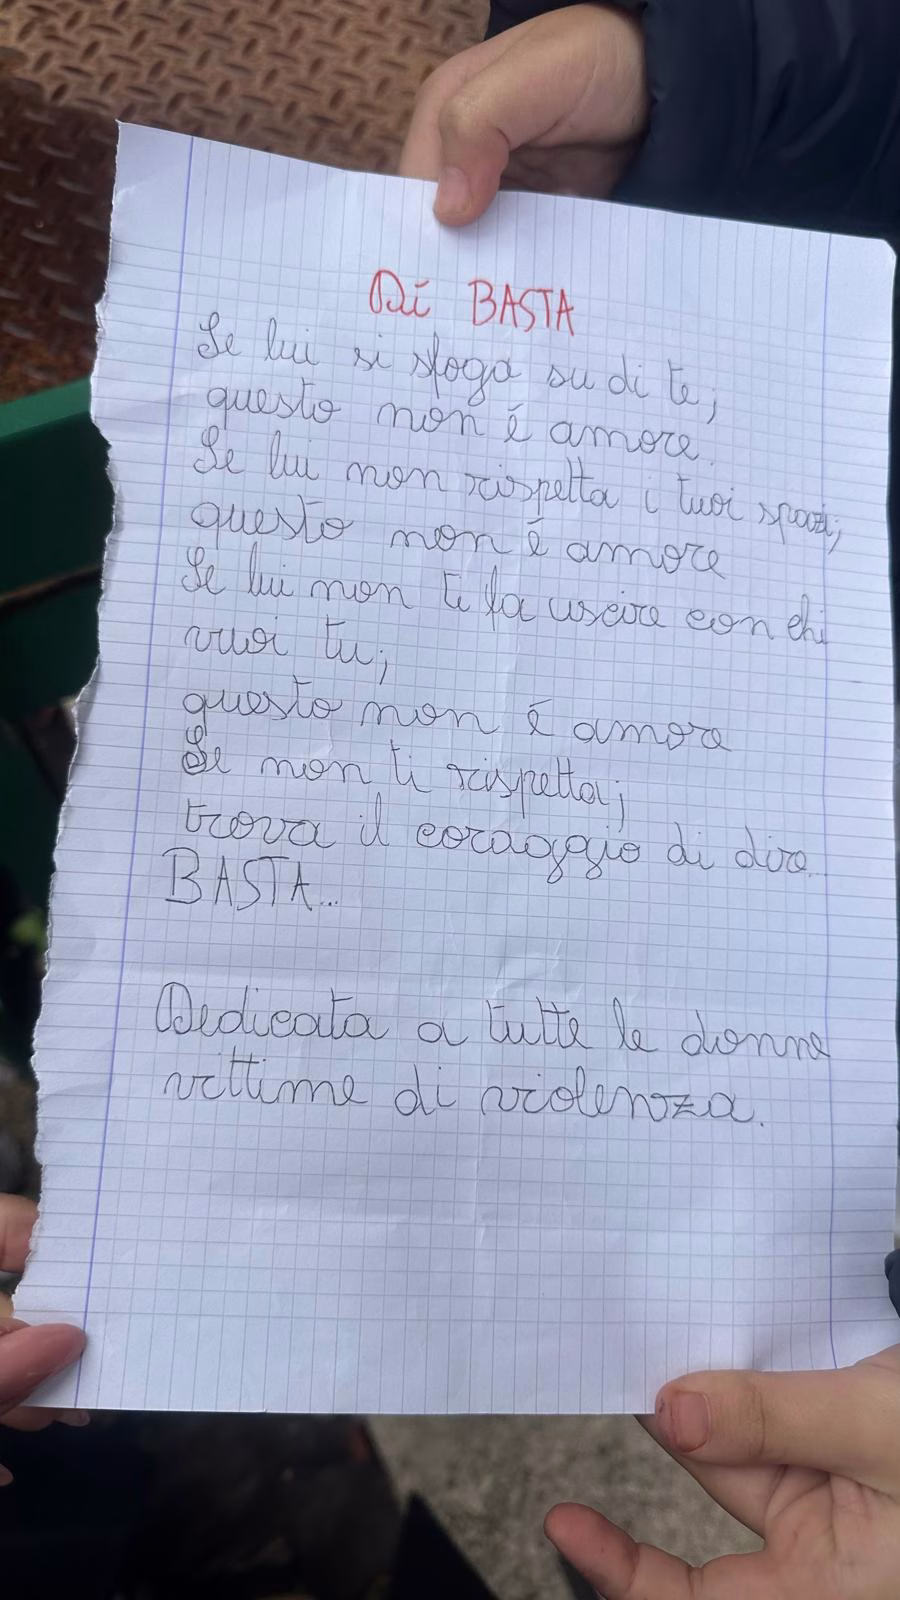 Di BASTA
Se lui si sfoga su di te;
questo non è amore.
Se lui non rispetta i tuoi spazi;
questo non è amore
Se lui non ti fa uscire con chi
vuoi tu;
questo non è amore
Se non ti rispetta;
trova il coraggio di dire
BASTA...
Dedicata a tutte le donne
vittime di violenza.